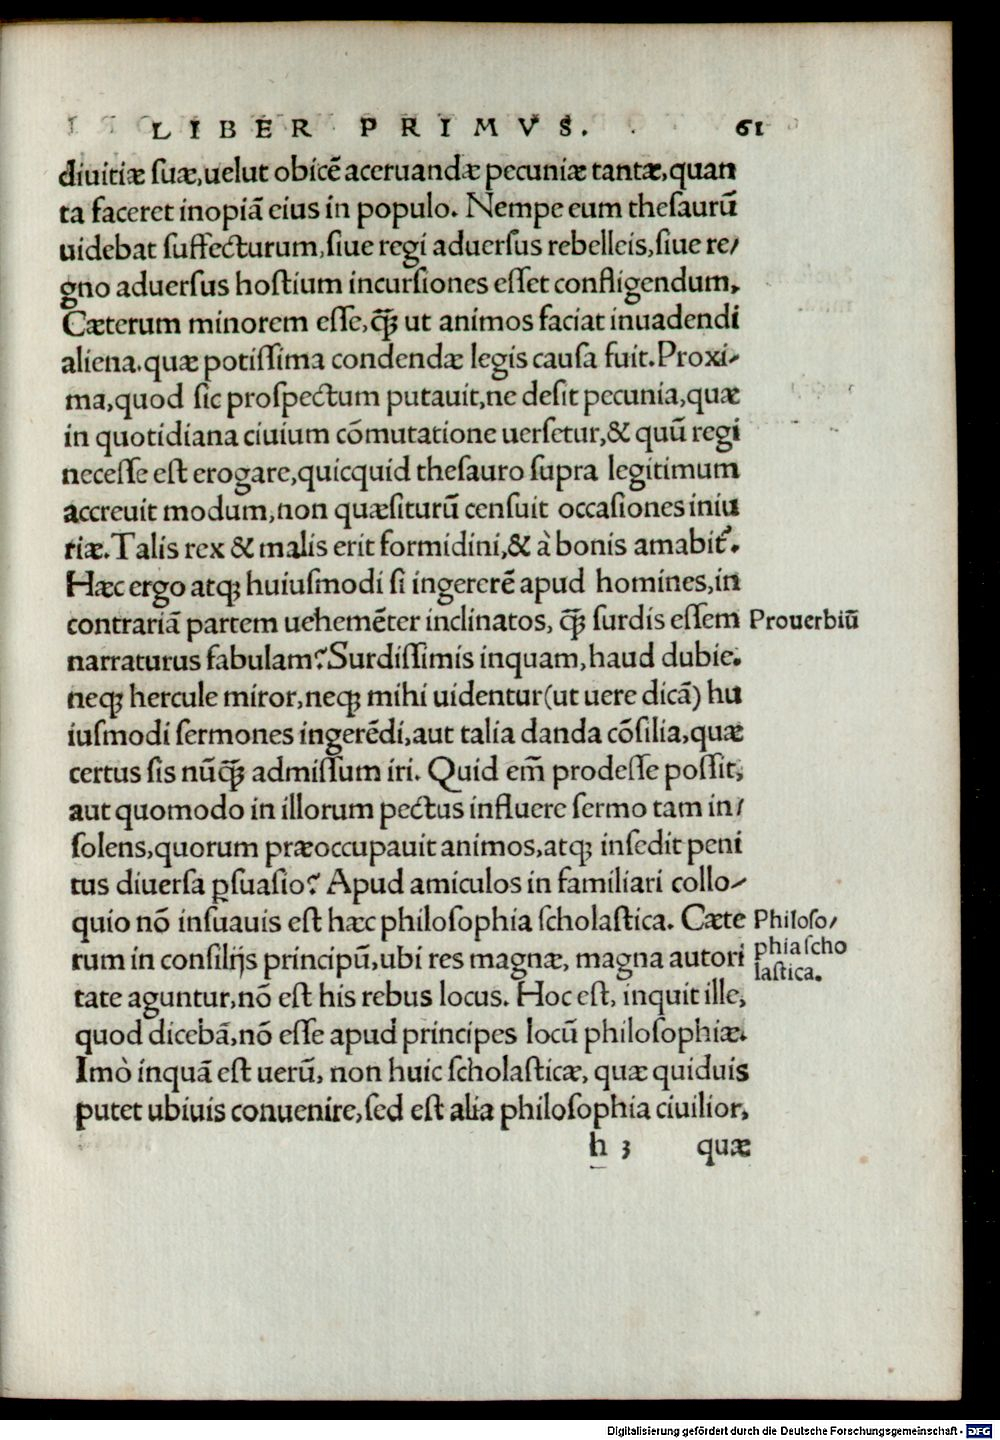 LIBER PRIMVS. 61
diuitiæ suæ,uelut obicẽ aceruandæ pecuniæ tantæ,quan
ta faceret inopiã eius in populo. Nempe eum thesaurũ
uidebat suffecturum,siue regi aduersus rebelleis,siue re/
gno aduersus hostium incursiones esset confligendum,
Cæterum minorem esse,q̃ꝫ ut animos faciat inuadendi
aliena.quæ potissima condendæ legis causa fuit.Proxi-
ma,quod sic prospectum putauit,ne desit pecunia,quæ
in quotidiana ciuium cõmutatione uersetur,& quũ regi
necesse est erogare,quicquid thesauro supra legitimum
accreuit modum,non quæsiturũ censuit occasiones iniu
riæ.Talis rex & malis erit formidini,& à bonis amabit᷑.
Hæc ergo atqꝫ huiusmodi si ingererẽ apud homines,in
contrariã partem uehemẽter inclinatos, q̃ꝫ surdis essem
Prouerbiũ
narraturus fabulam?Surdissimis inquam,haud dubie.
neqꝫ hercule miror,neqꝫ mihi uidentur(ut uere dicã) hu
iusmodi sermones ingerẽdi,aut talia danda cõsilia,quæ
certus sis nũq̃ꝫ admissum iri. Quid em̃ prodesse possit,
aut quomodo in illorum pectus influere sermo tam in/
solens,quorum præoccupauit animos,atqꝫ insedit peni
tus diuersa ꝑsuasio? Apud amiculos in familiari collo-
quio nõ insuauis est hæc philosophia scholastica. Cæte
Philoso/
phia scho
lastica.
rum in consilijs principũ,ubi res magnæ, magna autori
tate aguntur,nõ est his rebus locus. Hoc est, inquit ille,
quod dicebã,nõ esse apud principes locũ philosophiæ.
Imò inquã est uerũ, non huic scholasticæ, quæ quiduis
putet ubiuis conuenire,sed est alia philosophia ciuilior,
h 3 quæ
Digitalisierung gefördert durch die Deutsche Forschungsgemeinschaft - DFG